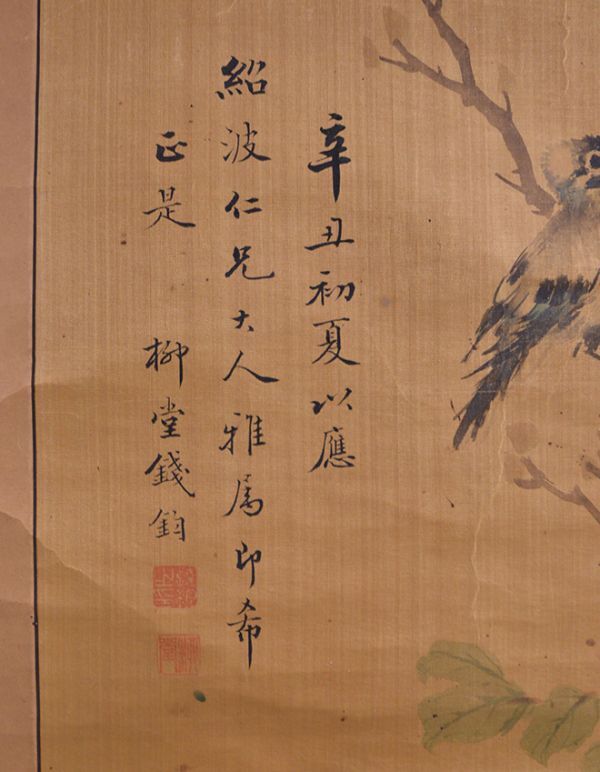 辛丑初夏以應
紹波仁兄大人雅屬即希
正是 柳堂錢鈞